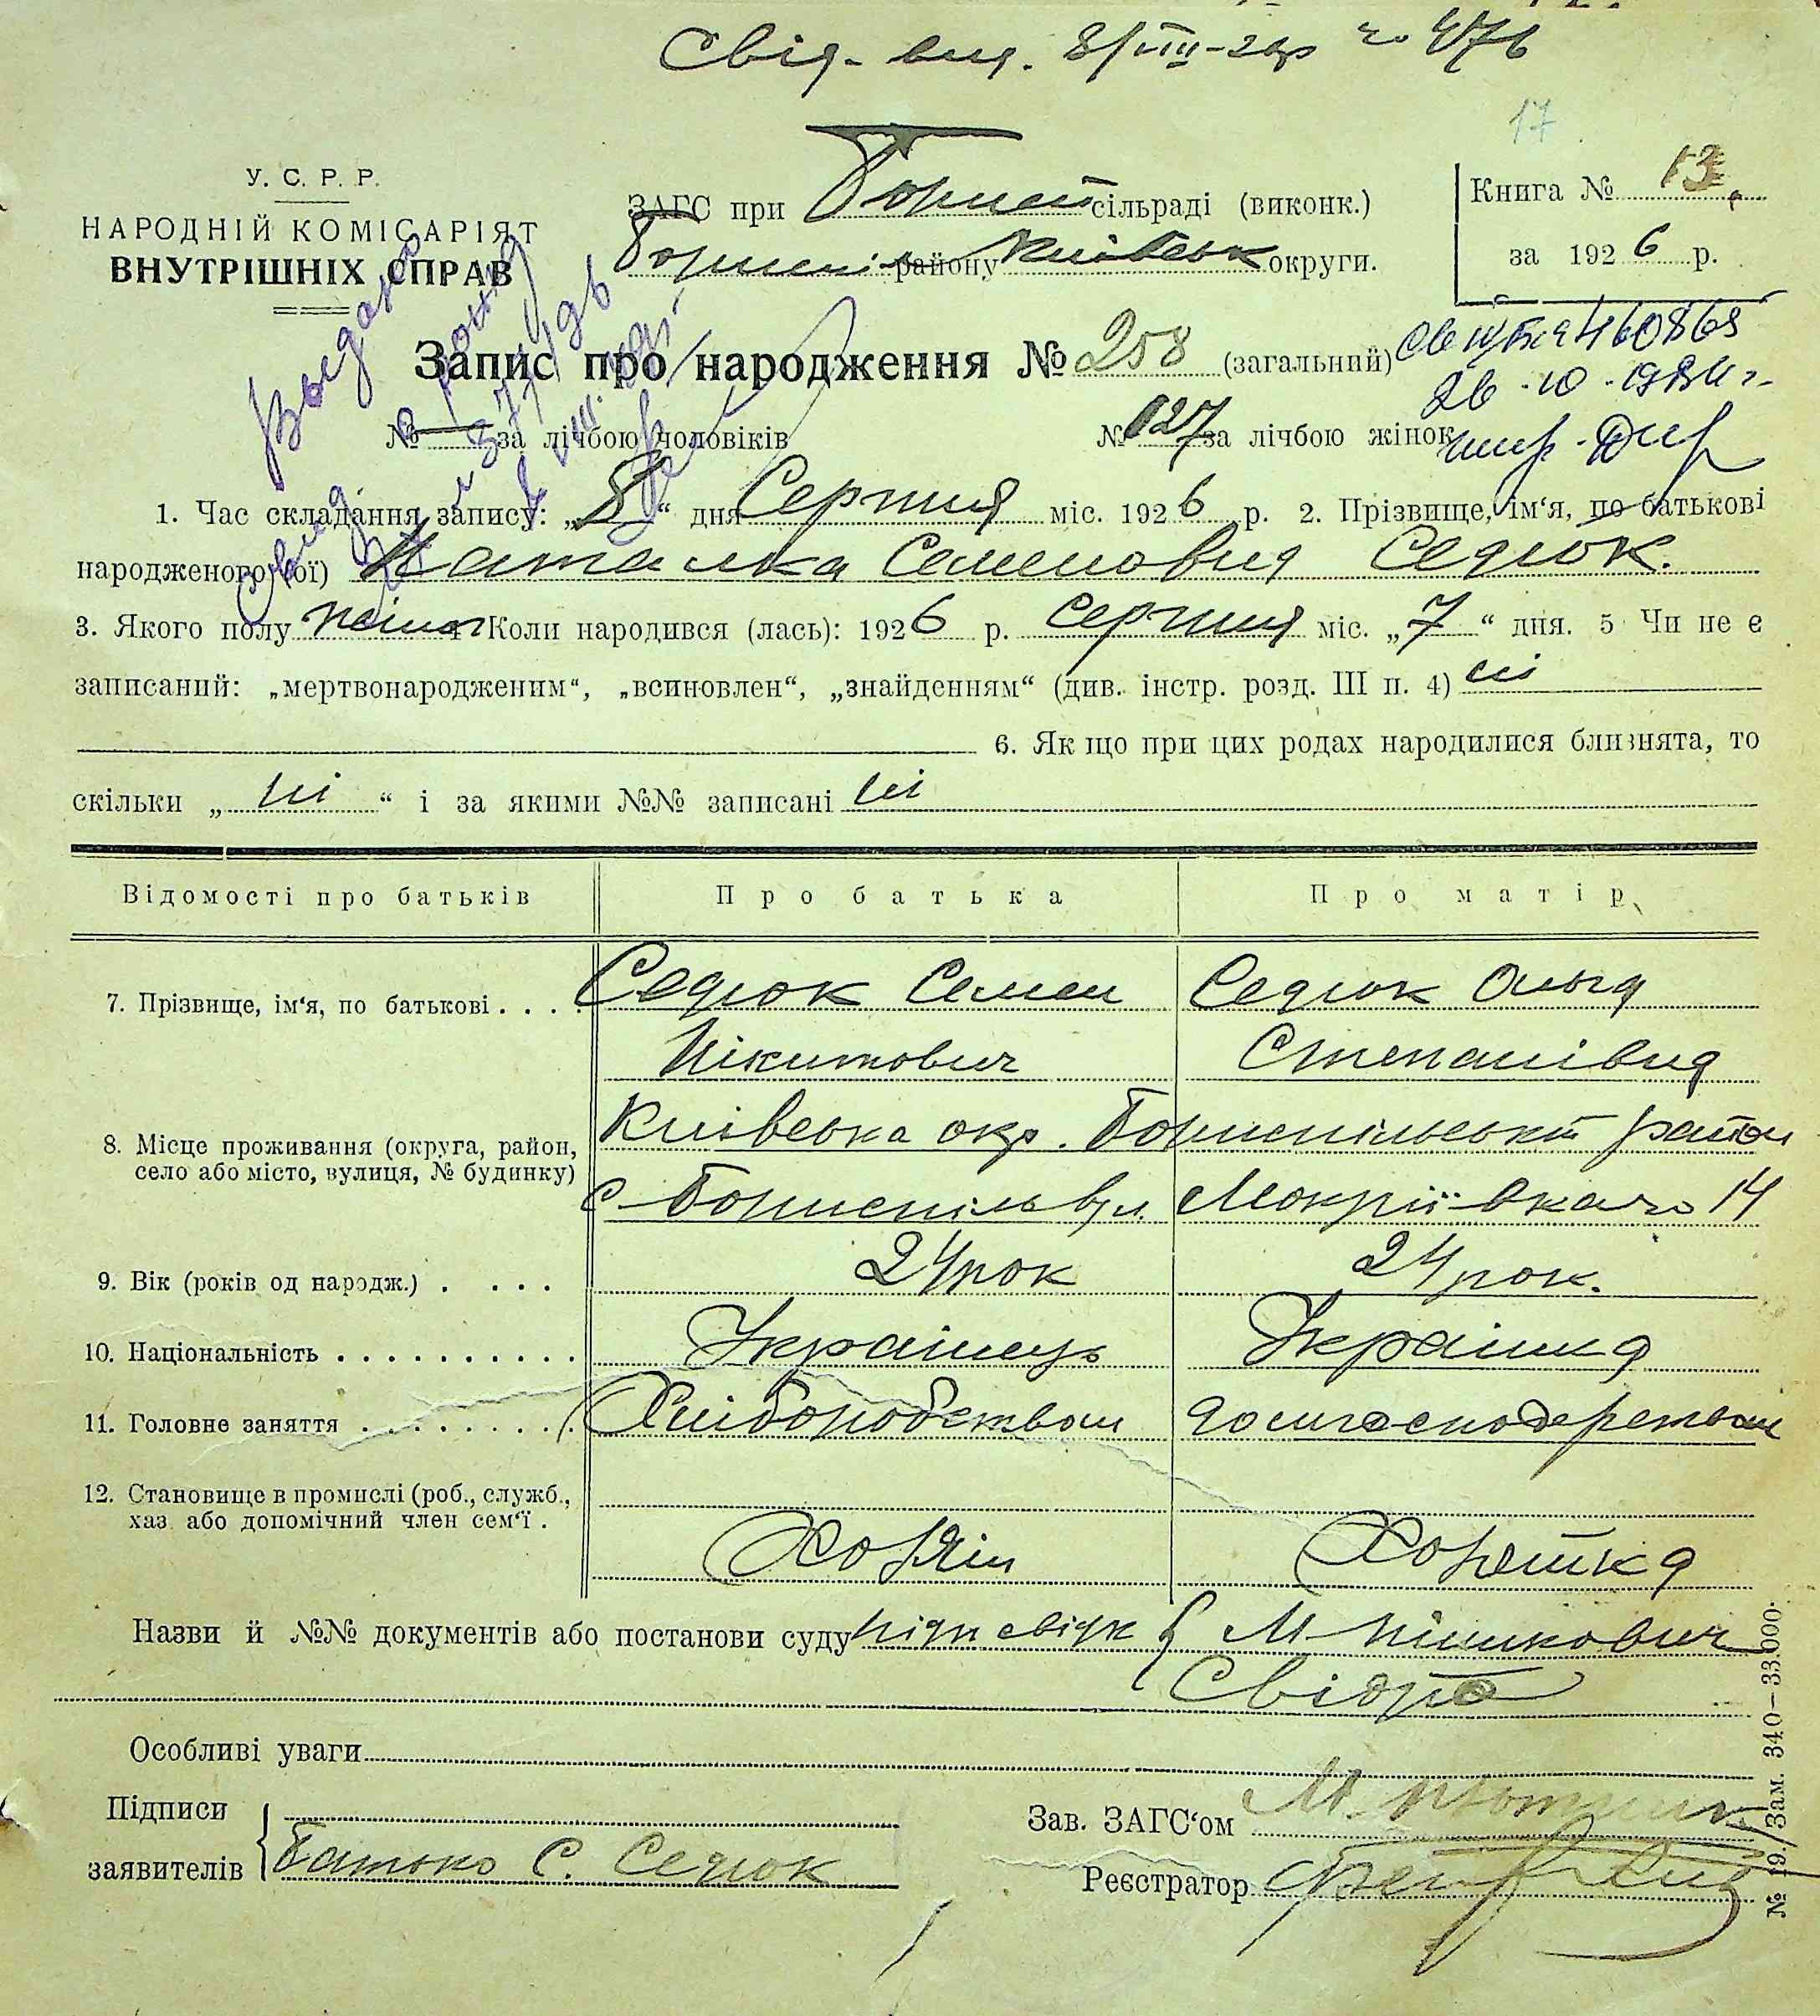 Свід. вид. 8/VIII-26р № 476
17
У. С. Р. Р.
НАРОДНІЙ КОМІСАРІЯТ
ВНУТРІШНІХ СПРАВ
ЗАГС при Борисп сільраді (виконк.)
Бориспіль району Київськ округи.
Книга № 13
за 1926 р.
Запис про народження № 258 (загальний)
26.10.
№ — за лічбою чоловіків
№ 127 за лічбою жінок
1. Час складання запису: „8“ дня Серпня міс. 1926 р. 2. Прізвище, ім‘я, по батькові
народженого (ої) Наталка Семеновна Седюк.
3. Якого полу жіноч 4. Коли народився (лась): 1926 р. Серпня міс. „7“ дня. 5 Чи не є
записаний: „мертвонародженим“, „всиновлен“, „знайденням“ (див. інстр. розд. III п. 4) ні
6. Як що при цих родах народилися близнята, то
скільки „ ні “ і за якими №№ записані ні
Відомості про батьків Про батька Про матір
7. Прізвище, ім‘я, по батькові . . . . Седюк Семен Седюк Ольга
Нікитович Степанівна
8. Місце проживання (округа, район, село або місто, вулиця, № будинку) Київська окр. Бориспільський район
с. Бориспіль вул. Мокріївка № 14
9. Вік (років од народж.) . . . . 24 рок 24 рок.
10. Національність . . . . . . . . . . Українець Українка
11. Головне заняття . . . . . . . . Хліборобством домгосподарством
12. Становище в промислі (роб., служб.,
хаз. або допомічний член сем‘ї . Хозяїн Хозяйка
Назви й №№ документів або постанови суду
Особливі уваги
Підписи
заявителів Батько С. Седюк
Зав. ЗАГС‘ом
Реєстратор
№ 19. Зам. 340—33.000.